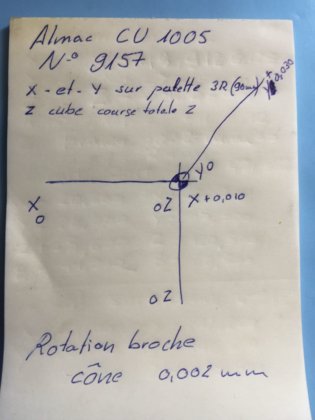 Almac CU 1005
N° 9157
X - et - Y sur palette 3R (90mm)
Z cube course totale Z
X
Y 0,030
Y 0
X
0
0 Z
X + 0,010
0 Z
Rotation broche
cône 0,002 mm